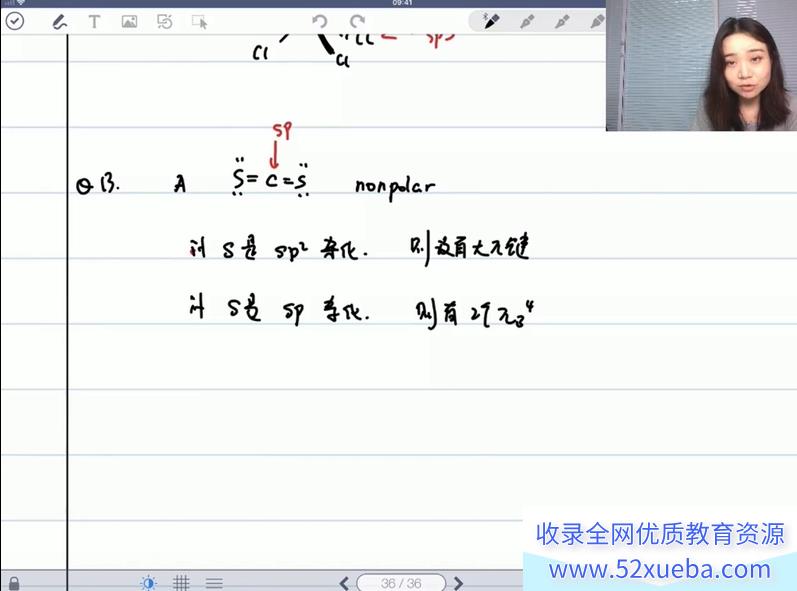 09:41
Cl Cl sp3
Cl
sp
Q B. A S=C=S nonpolar
计 S是 sp² 杂化. 则没有大π键
计 S是 sp 杂化. 则有 2个 π₃⁴
收录全网优质教育资源
www.52xueba.com
36 / 36